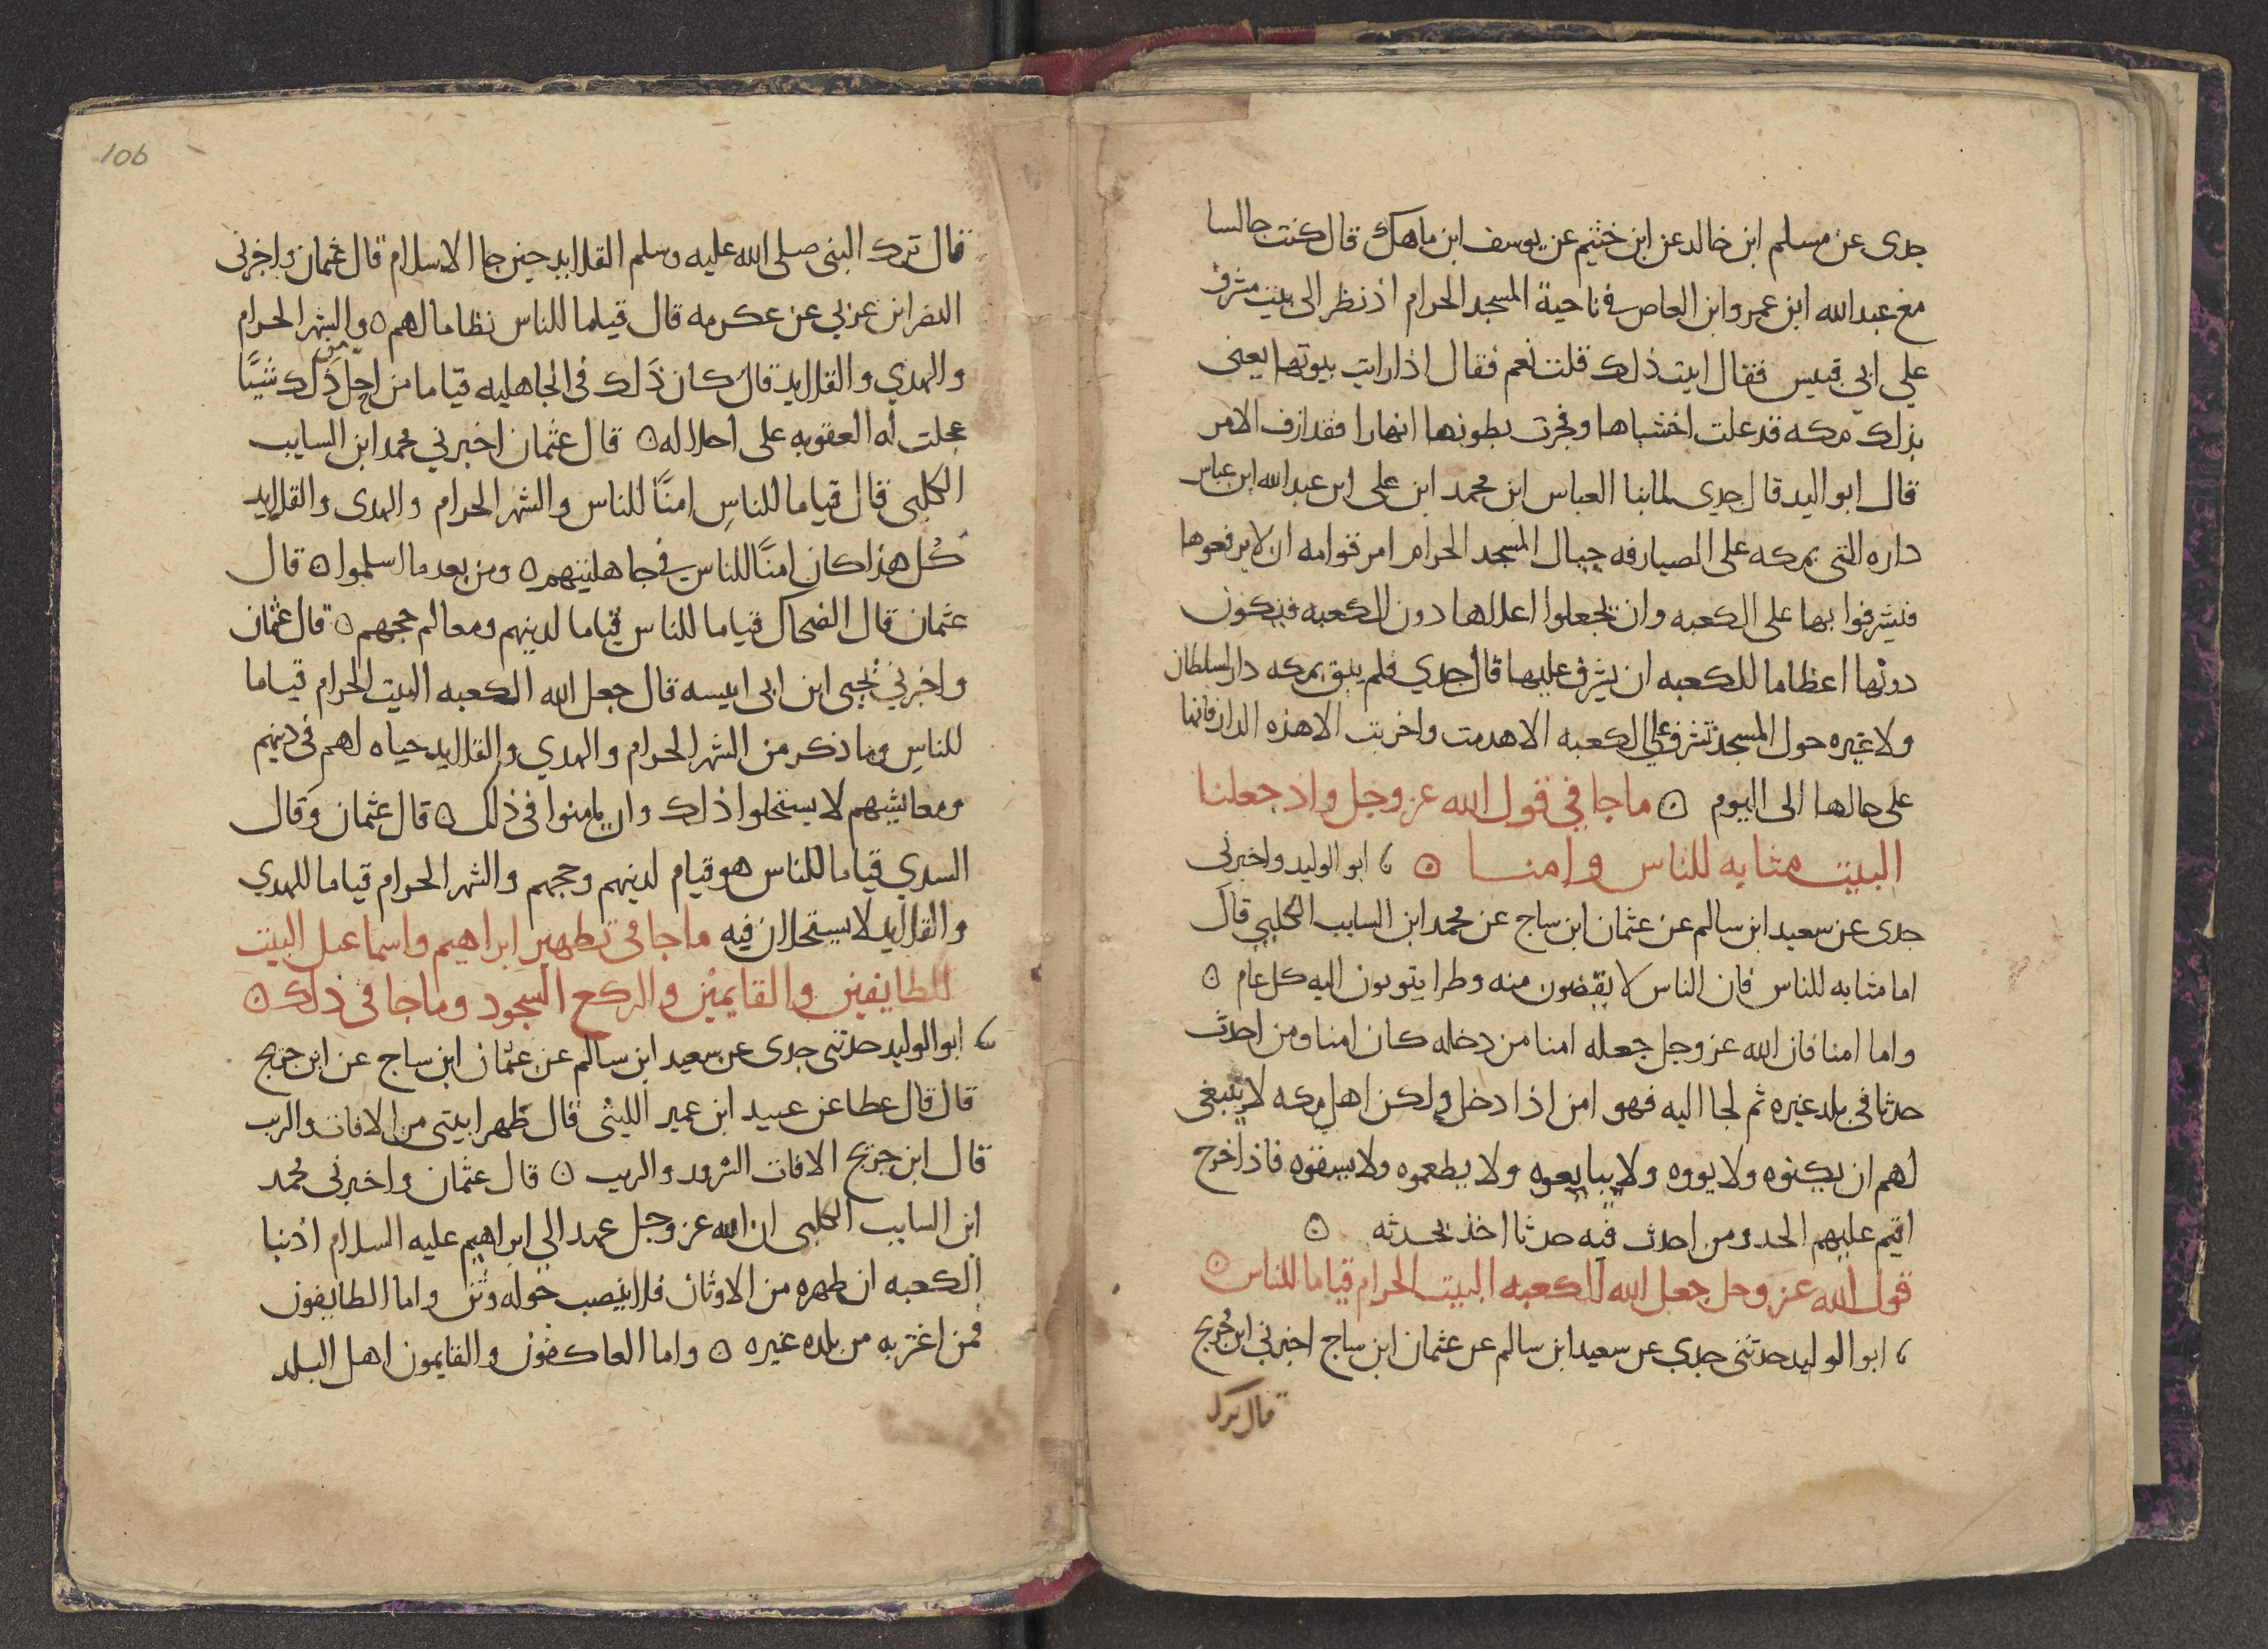 جدى عن مسلم ابن خالد عن ابن خثيم عن يوسف ابن ماهك قال كنت جالسا
مع عبد الله ابن عمرو ابن العاص في ناحية المسجد الحرام اذ نظر الى بيت مشرف
على ابي قبيس فقال ابيت ذلك قلت نعم فقال اذا رايت بيوتها يعنى
بذلك مكه قد علت اخشباها وفجرت بطونها انهارا فقد ازف الامر
قال ابو اليد قال جدى لما بنا العباس ابن محمد ابن على ابن عبد الله ابن عباس
داره التى بمكه على الصيارفه حيال المسجد الحرام امر قوامه ان لا يرفعوها
فيشرفوا بها على الكعبه وان يجعلوا اعلاها دون الكعبه فيكون
دونها اعظاما للكعبه ان يشرف عليها قال جدي فلم يبق بمكه دار لسلطان
ولا غيره حول المسجد تشرف على الكعبه الا هدمت واخربت الا هذه الدار فانها
على حالها الى اليوم ه ما جا في قول الله عز وجل واذ جعلنا
البيت مثابه للناس وامنا ه ابو الوليد واخبرنى
جدى عن سعيد ابن سالم عن عثمان ابن ساج عن محمد ابن السايب الكلبي قال
اما مثابه للناس فان الناس لا يقضون منه وطرا يثوبون اليه كل عام ه
واما امنا فان الله عز وجل جعله امنا من دخله كان امنا ومن احدث
حدثا في بلد غيره ثم لجا اليه فهو امن اذا دخل ولكن اهل مكه لا ينبغى
لهم ان يكنوه ولا يووه ولا يبايعوه ولا يطعموه ولا يسقوه فاذ اخرج
اقيم عليهم الحد ومن احدث فيه حدثا اخذ بحدثه ه
قول الله عز وجل جعل الله الكعبه البيت الحرام قياما للناس ه
ابو الوليد حدثنى جدي عن سعيد ابن سالم عن عثمان ابن ساج اخبرني ابن جريج
قال ترك
106
قال ترك النبى صلى الله عليه وسلم القلايد حين جا الاسلام قال عثمان واخبرنى
النضر ابن عربي عن عكرمه قال قياما للناس نظاما لهم ه والشهر الحرام
والهدي والقلايد قال كان ذلك في الجاهليه قياما من اجل ذلك شيًا
عجلت له العقوبه على احلاله ه قال عثمان اخبرني محمد ابن السايب
الكلبى قال قياما للناس امنًا للناس والشهر الحرام والهدى والقلايد
كل هذا كان امنًا للناس في جاهليتهم ه ومن بعد ما اسلموا ه قال
عثمان قال الضحاك قياما للناس قياما لدينهم ومعالم حجهم ه قال عثمان
واخبرني يحيى ابن ابى انيسه قال جعل الله الكعبه البيت الحرام قياما
للناس وما ذكر من الشهر الحرام والهدي والقلايد حياه لهم في دينهم
ومعايشهم لا يستحلوا ذلك وان يامنوا فى ذلك ه قال عثمان وقال
السدي قياما للناس هو قيام لدينهم وحجهم والشهر الحرام قياما للهدي
والقلايد لا يستحلان فيه ما جا في تطهير ابراهيم واسماعيل البيت
للطايفين والقايمين والركع السجود وما جا فى ذلك ه
ابو الوليد حدثنى جدى عن سعيد ابن سالم عن عثمان ابن ساج عن ابن جريج
قال قال عطا عن عبيد ابن عمير الليثى قال طهرا بيتى من الافات والريب
قال ابن جريج الافات الشرور والريب ه قال عثمان واخبرنى محمد
ابن السايب الكلبى ان الله عز وجل عهد الي ابراهيم عليه السلام اذ بنا
الكعبه ان طهره من الاوثان فلا ينصب حوله وثن واما الطايفون
فمن اغتر به من بلده غيره ه واما العاكفون والقايمون اهل البلد